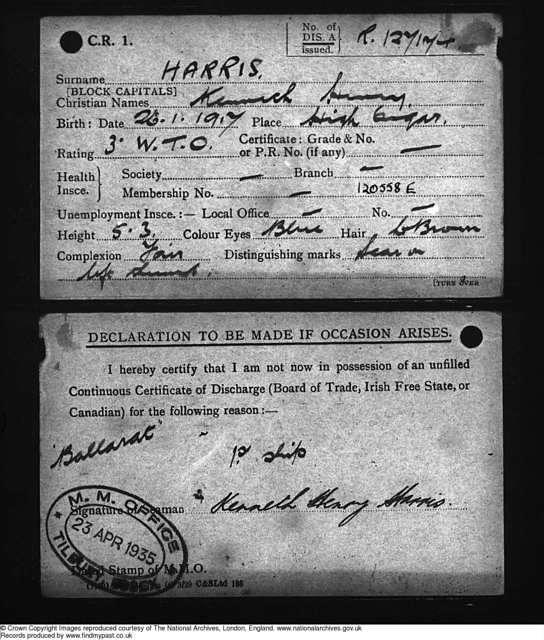 C.R. 1.
No. of
DIS. A
issued.
Surname HARRIS.
[BLOCK CAPITALS]
Christian Names Kenneth Henry.
Birth: Date 26.1.1917 Place
Rating 3° W.T.O. Certificate: Grade & No.
or P.R. No. (if any) —
Health
Insce. } Society — Branch —
Membership No. — 120558 E
Unemployment Insce.:— Local Office — No. —
Height 5.3. Colour Eyes Blue Hair L Brown
Complexion Fair Distinguishing marks Scar on
left
[TURN OVER
DECLARATION TO BE MADE IF OCCASION ARISES.
I hereby certify that I am not now in possession of an unfilled
Continuous Certificate of Discharge (Board of Trade, Irish Free State, or
Canadian) for the following reason:—
"Ballarat"
1st ship
Signature of Seaman Kenneth Henry Harris.
M. M. OFFICE
23 APR 1935
Stamp of M.M.O.
© Crown Copyright Images reproduced courtesy of The National Archives, London, England. www.nationalarchives.gov.uk
Records produced by www.findmypast.co.uk